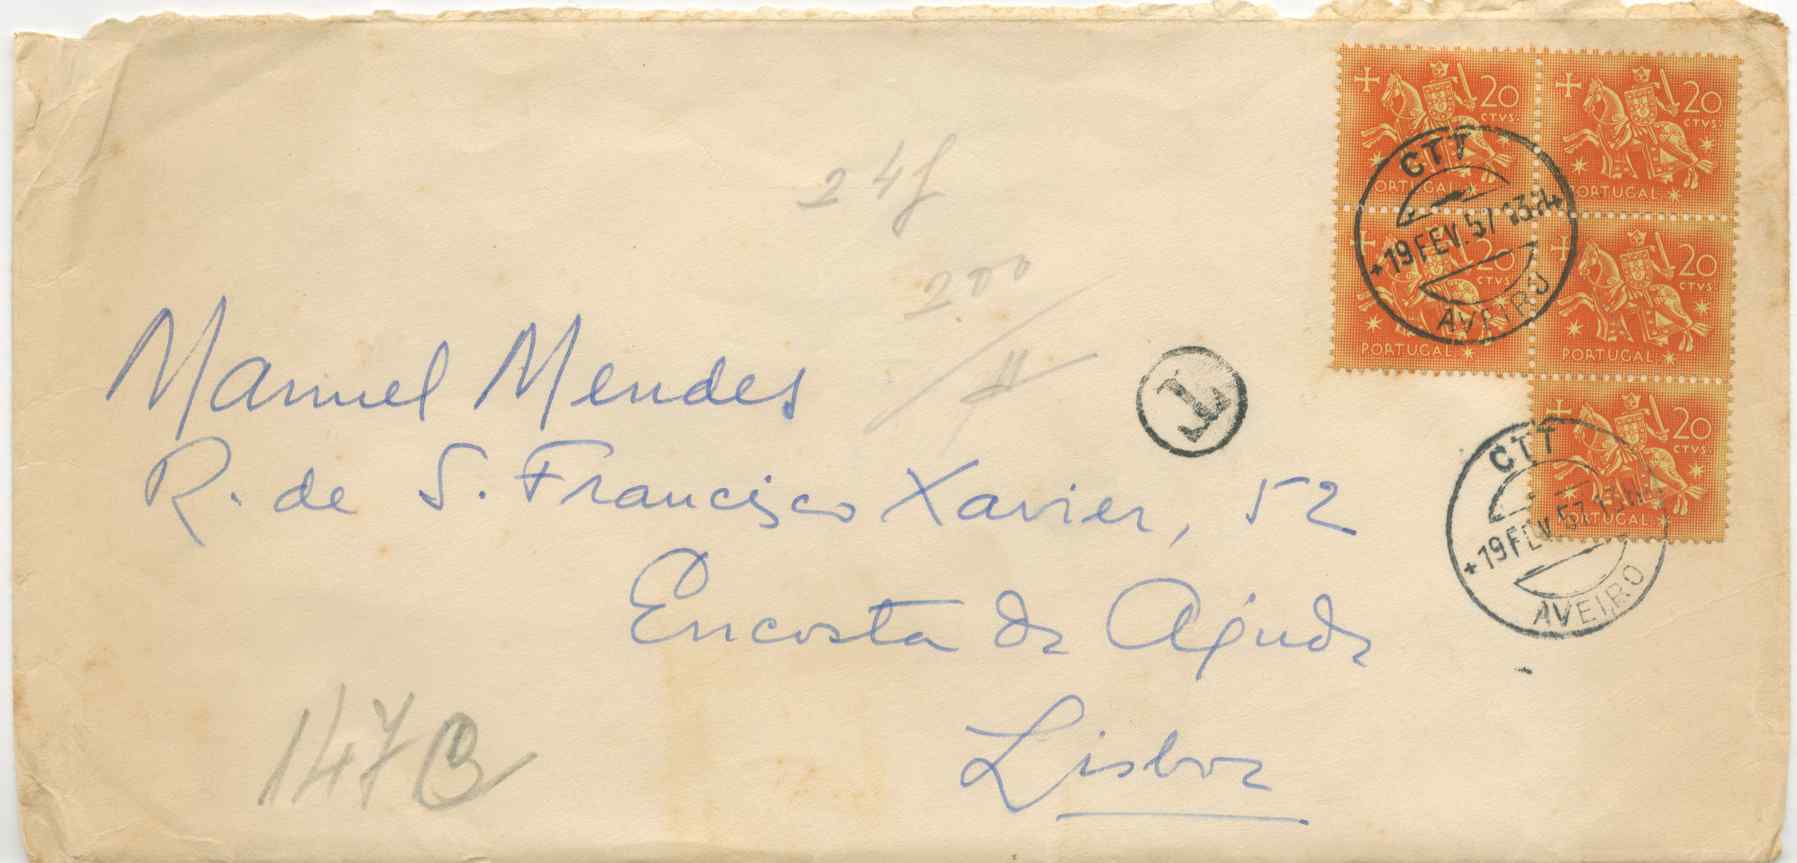 20 CTVS. PORTUGAL
20 CTVS. PORTUGAL
20 CTVS. PORTUGAL
20 CTVS. PORTUGAL
20 CTVS. PORTUGAL
CTT
19 FEV. 57
AVEIRO
24
200
T
Manuel Mendes
R. de S. Francisco Xavier, 52
Encosta da Ajuda
Lisboa
CTT
19 FEV. 57
AVEIRO
147